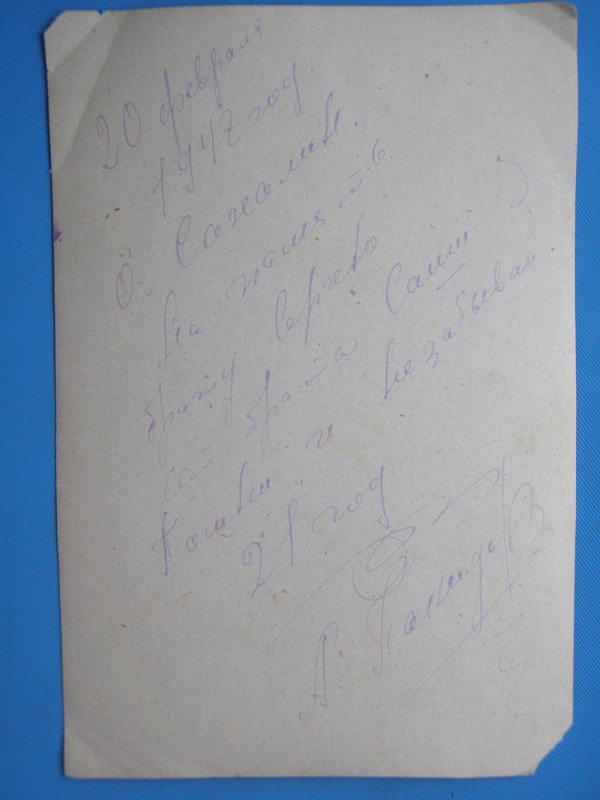 20 февраля
1947 год
О. Сахалин.
На память
брату Сергею
от брата Саши
Помни и незабывай.
21 год
А.